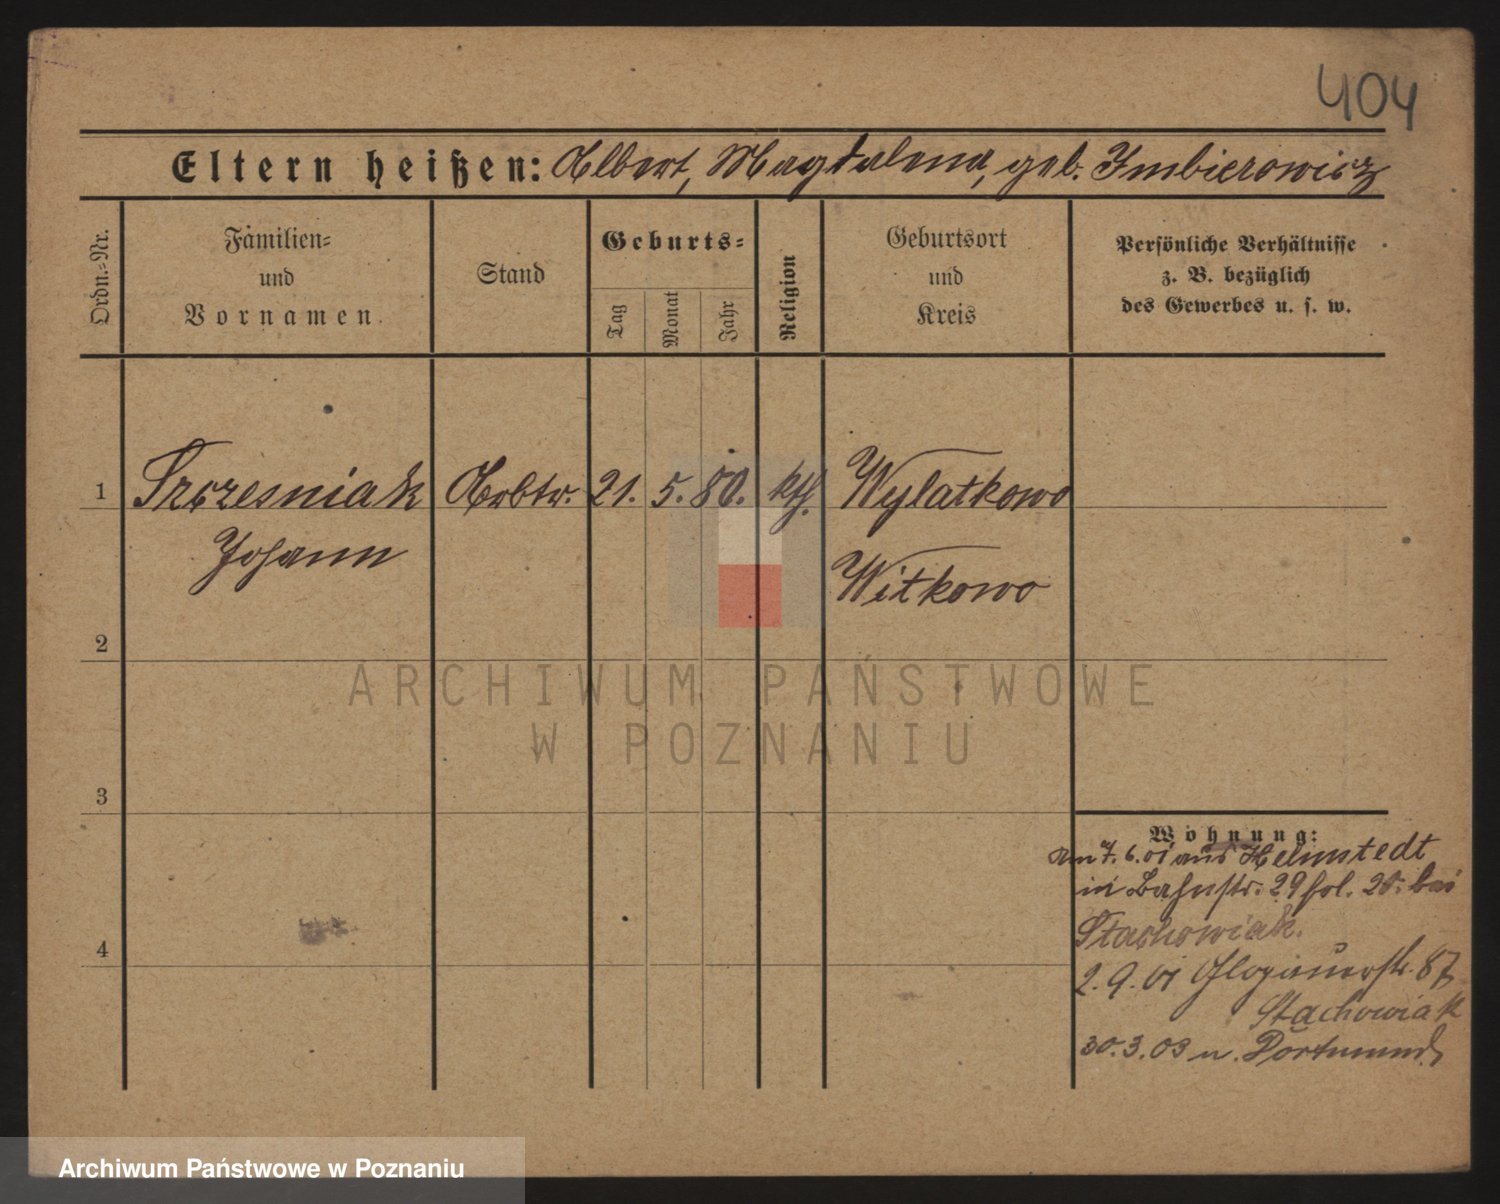 404
Eltern heißen: Albert, Magdalena, geb. Imbierowicz
Ordn.-Nr.
Familien-
und
Vornamen.
Stand
Geburts-
Tag
Monat
Jahr
Religion
Geburtsort
und
Kreis
Persönliche Verhältnisse
z. B. bezüglich
des Gewerbes u. s. w.
1 Szczesniak Arbtr. 21. 5. 80. kth. Wylatkowo
Johann
Witkowo
2
ARCHIWUM PAŃSTWOWE
W POZNANIU
3
Wohnung:
am 7.6.01 aus Helmstedt
in Bahnstr. 29 bei
Stachowiak.
4
2.9.01 Glogauerstr. 87
Stachowiak
30.3.03 n. Dortmund
Archiwum Państwowe w Poznaniu